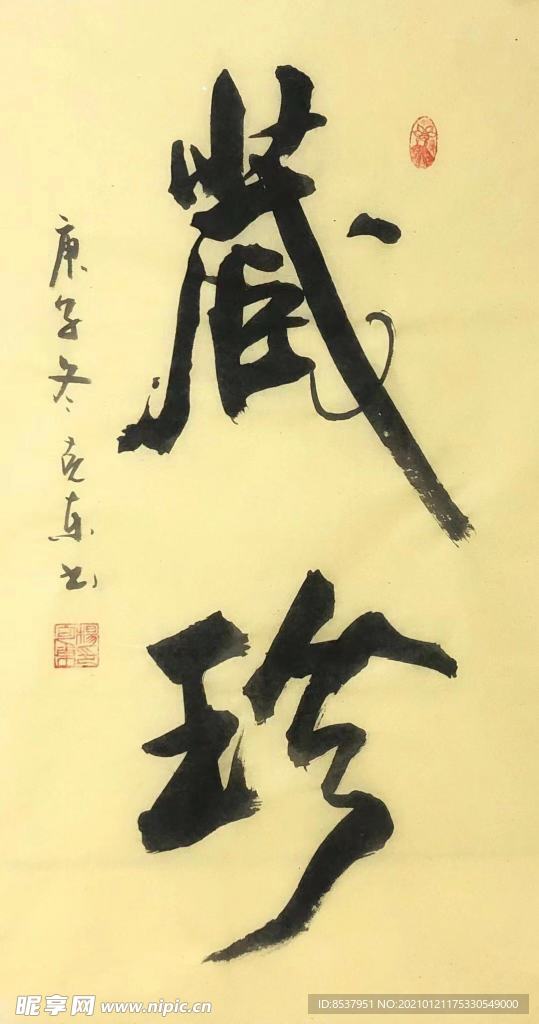 藏珍
庚子冬 克东书
昵享网 www.nipic.cn
ID:8537951 NO:20210121175330549000